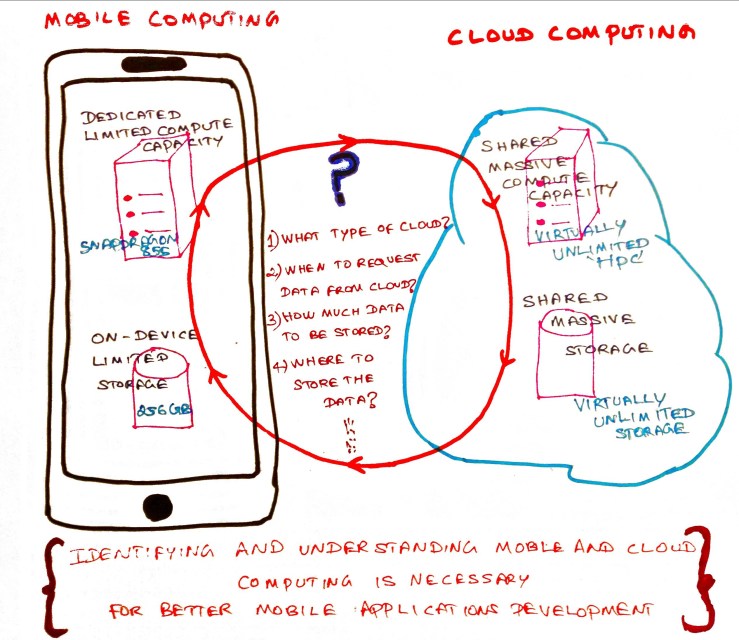 MOBILE COMPUTING
CLOUD COMPUTING
DEDICATED
LIMITED COMPUTE
CAPACITY
SNAPDRAGON
855
ON-DEVICE
LIMITED
STORAGE
256GB
?
1) WHAT TYPE OF CLOUD?
2) WHEN TO REQUEST
DATA FROM CLOUD?
3) HOW MUCH DATA
TO BE STORED?
4) WHERE TO
STORE THE
DATA?
SHARED
MASSIVE
COMPUTE
CAPACITY
VIRTUALLY
UNLIMITED
HPC
SHARED
MASSIVE
STORAGE
VIRTUALLY
UNLIMITED
STORAGE
IDENTIFYING AND UNDERSTANDING MOBLE AND CLOUD
COMPUTING IS NECESSARY
FOR BETTER MOBILE APPLICATIONS DEVELOPMENT